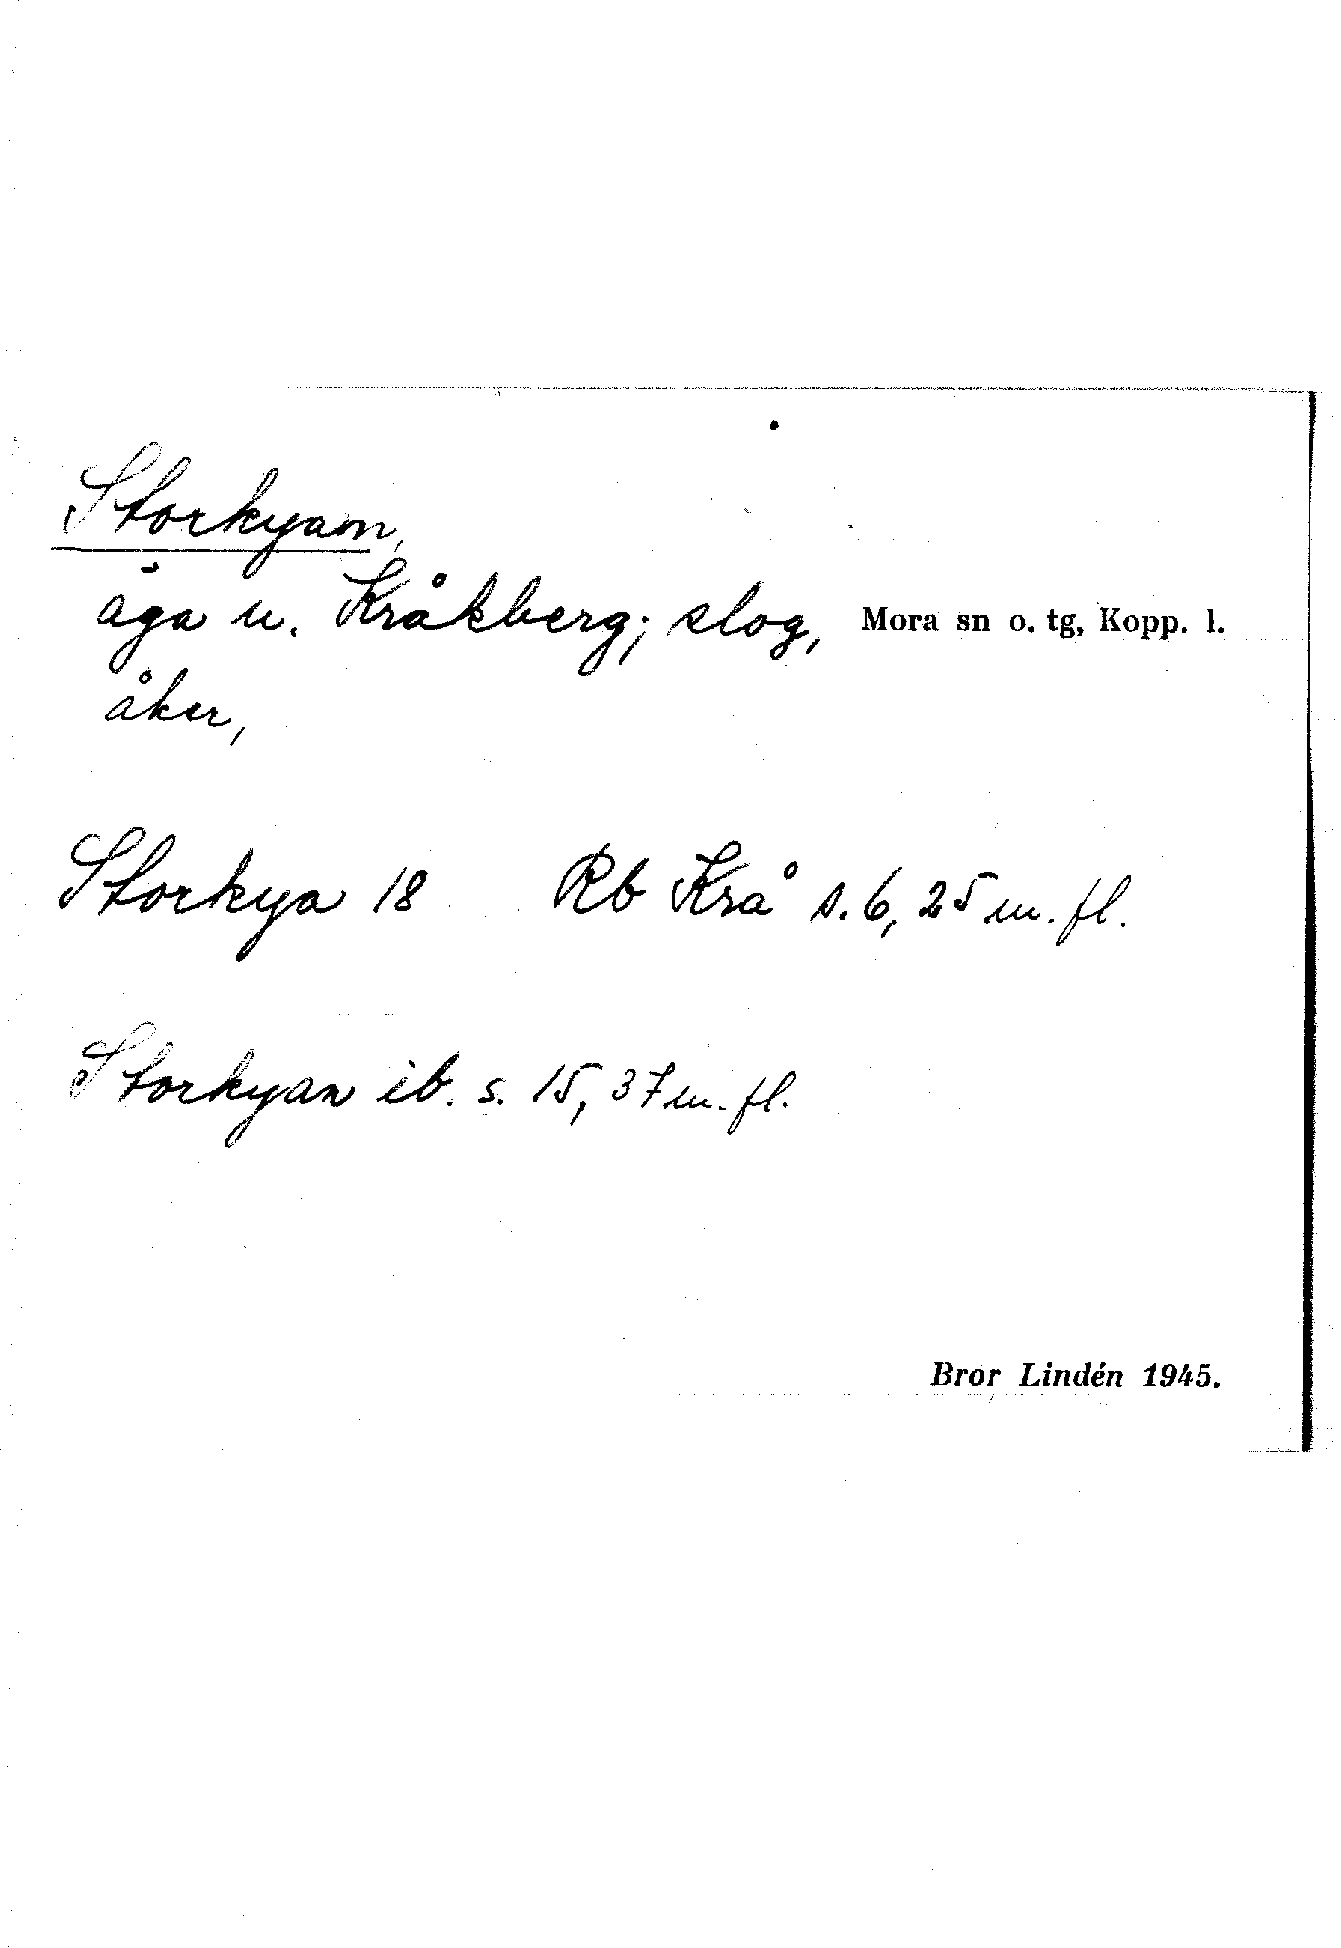 Storkyan,
äga u. Kråkberg; slog, Mora sn o. tg, Kopp. l.
åker,
Storkya 18 Rb Krå s. 6, 25 m. fl.
Storkyan ib. s. 15, 37 m. fl.
Bror Lindén 1945.